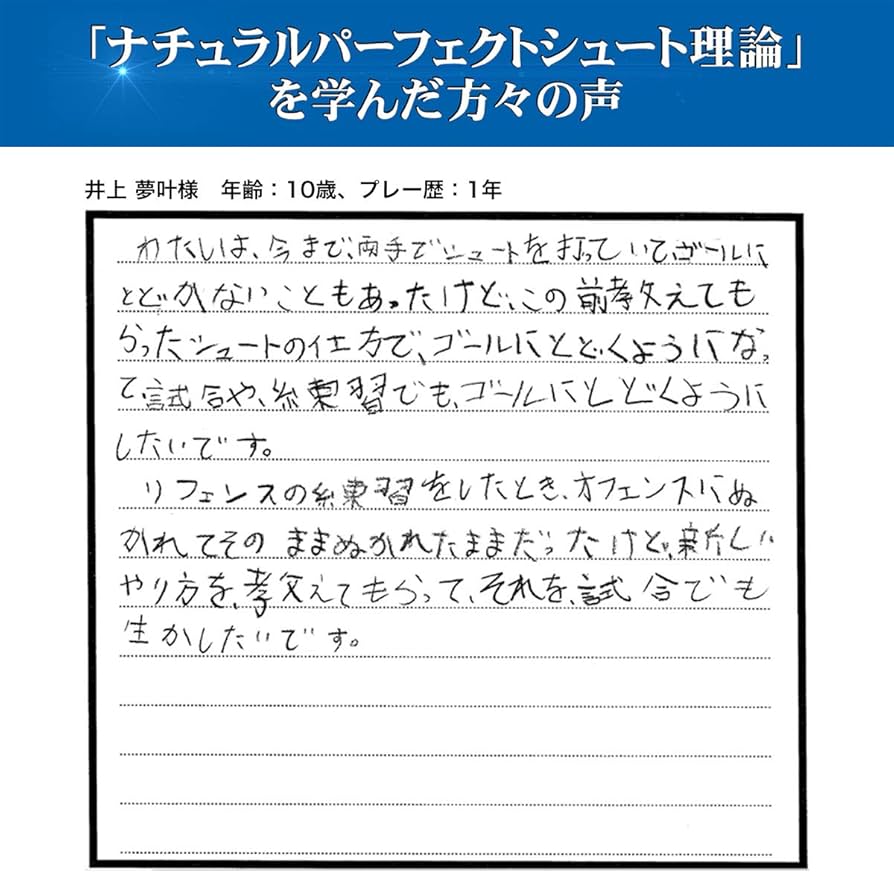 「ナチュラルパーフェクトシュート理論」
を学んだ方々の声
井上 夢叶様　年齢：10歳、プレー歴：1年
わたしは、今まで、両手でシュートを打っていて、ゴールに
とどかないこともあったけど、この前孝攵えても
らったシュートの仕方で、ゴールにとどくようになっ
て、試合や、練習でも、ゴールにとどくように
したいです。
リフェンスの練習をしたとき、オフェンスにぬ
かれてそのままぬかれたままだったけど、新しい
やり方を、孝攵えてもらって、それを、試合でも
生かしたいです。